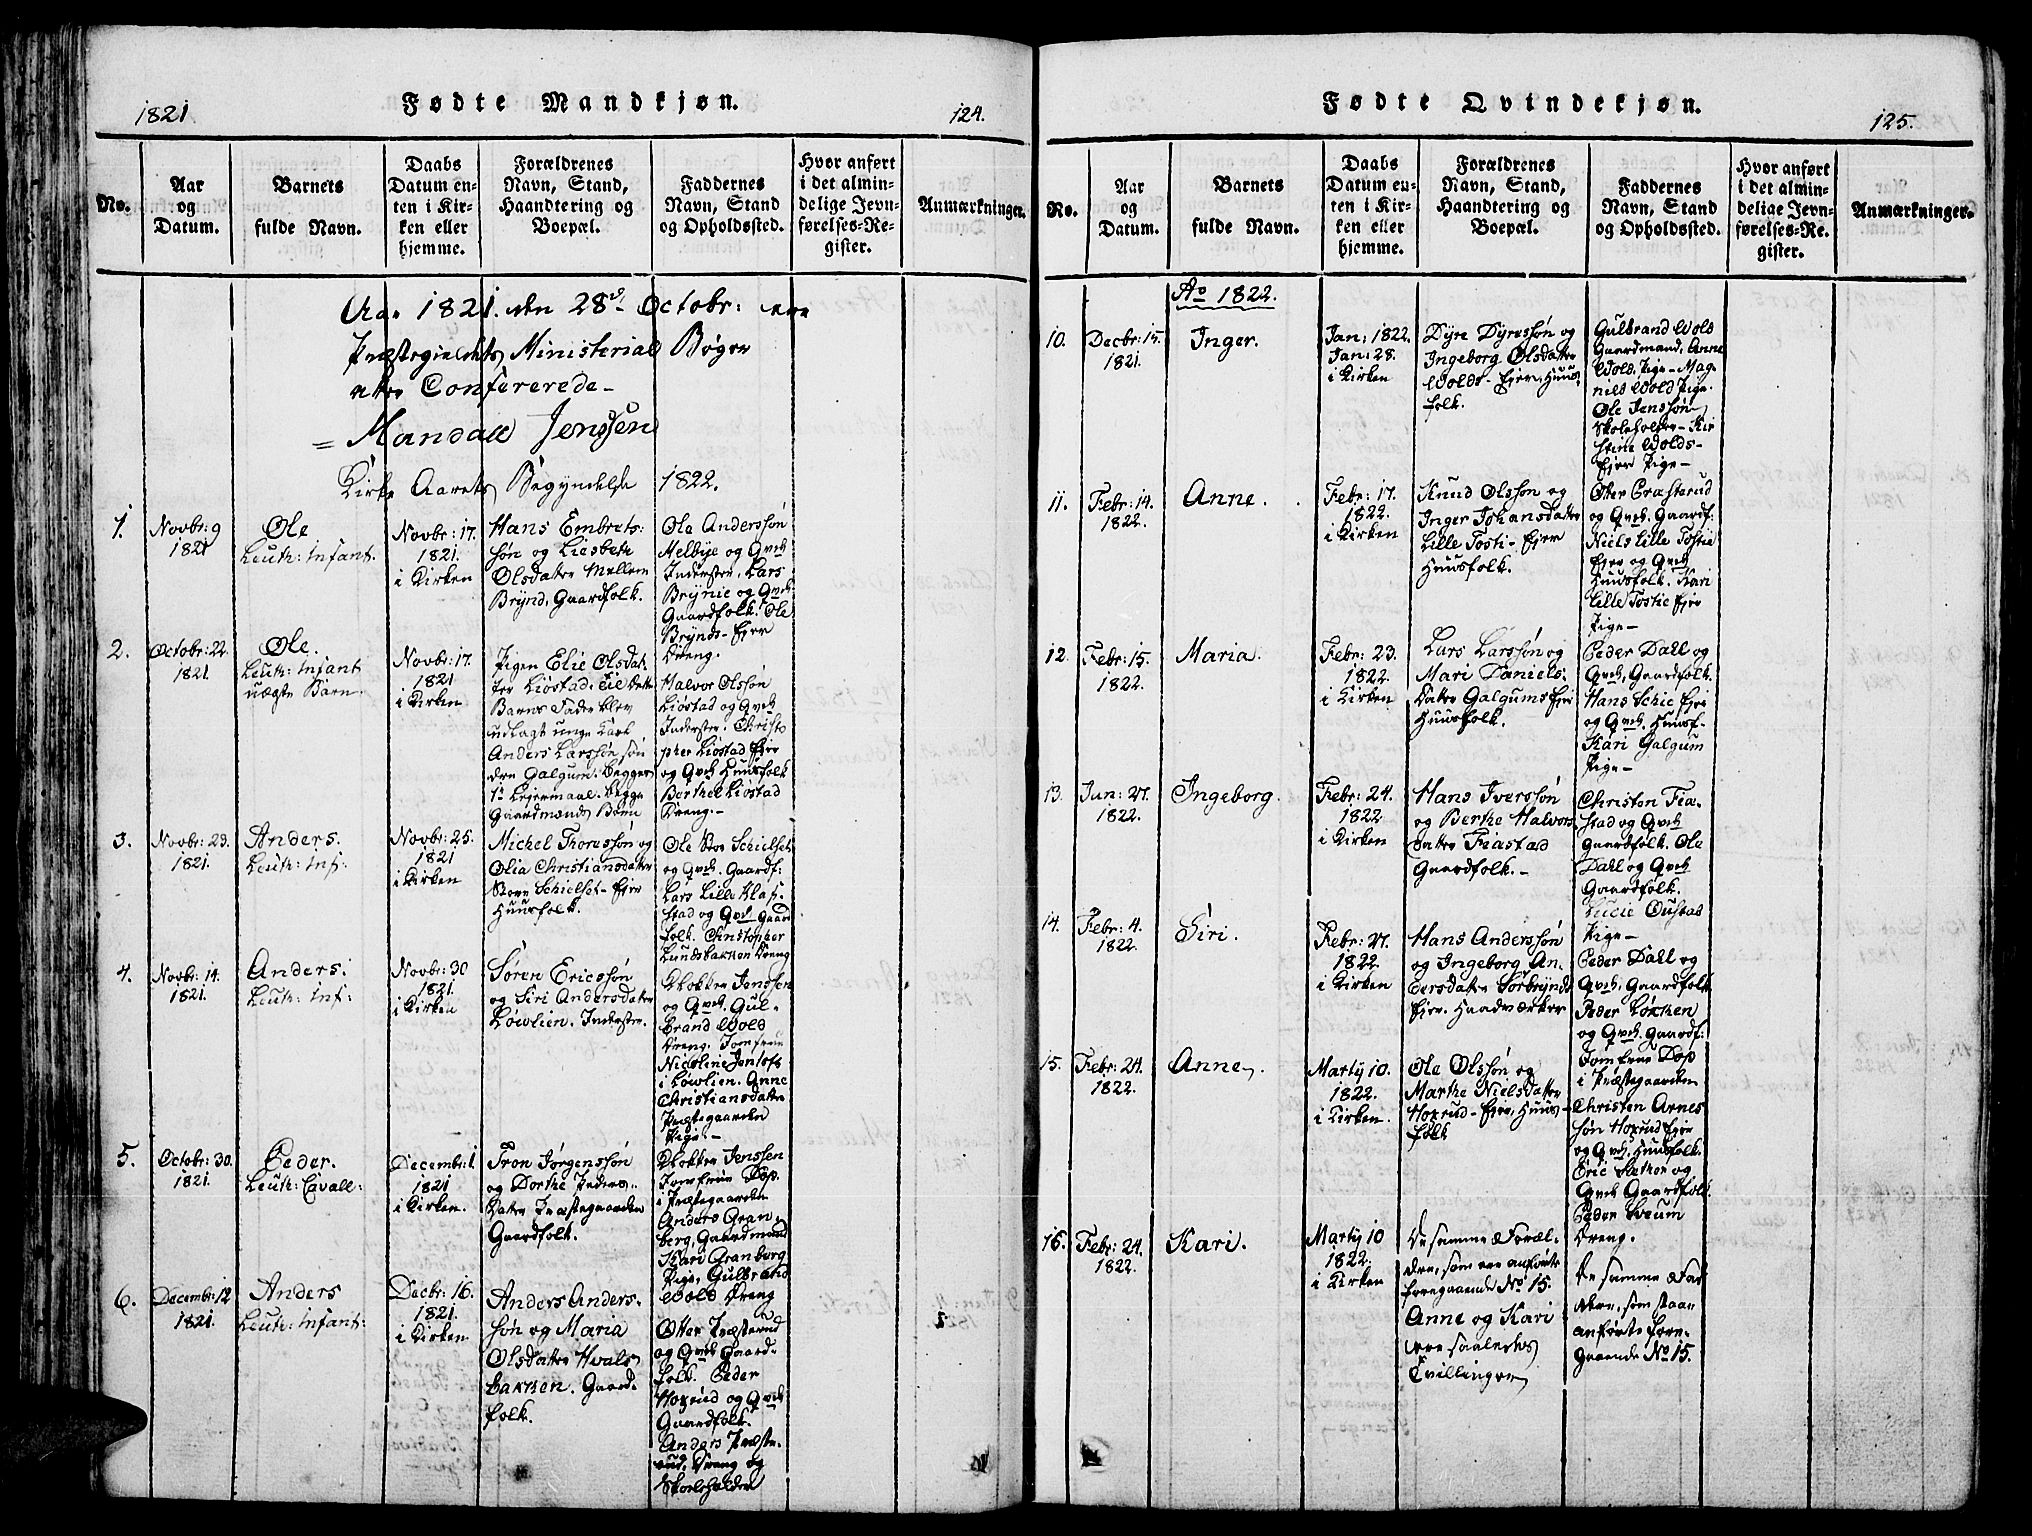 1821.
Fødte Mandkjøn.
124.
No.
Aar
og
Datum.
Barnets
fulde Navn.
Daabs
Datum en-
ten i Kir-
ken eller
hjemme.
Forældrenes
Navn, Stand,
Haandtering og
Boepæl.
Faddernes
Navn, Stand
og Opholdssted.
Hvor anført
i det almin-
delige Jevn-
førelses-Re-
gister.
Anmærkninger.
Aar 1821. den 28de Octobr: ere
Præstegieldets Ministerial Bøger
atter Confererede-
= Mandall Jenssen
Kirke Aarets Begyndelse 1822.
1.
Novbr: 9
1821
Ole
Leuth: Infant.
Novbr: 17.
1821.
i Kirken
Hans Embrets:
søn og Liesbeth
Olsdatter Mellem
Brynd, Gaardfolk.
Ole Anderssøn
Melbye og Qvck
Inderster, Lars
Brynie og Qvck
Gaardfolk. Ole
Brynds-Ejer
Dreng.
2.
Octobr: 22.
1821.
Ole.
Leuth: Infant
uægte Barn.
Novbr: 17.
1821
i Kirken
Pigen Elie Olsdat
ter Liøstad. Til dette
Barns Fader blev
udlagt unge Karl
Anders Larssøn søn
dre Galgum. begges
1te Leiermaal. begge
Gaardmands Børn
Halvor Olssøn
Liøstad og Qvck
Inderster. Christo
pher Liøstad Ejer
og Qvck Huusfolk
Berthel Liøstad
Dreng.-
3.
Novbr: 23.
1821.
Anders.
Leuth: Inf:
Novbr: 25.
1821
i Kirken
Michel Thoressøn og
Olia Christiansdatter
Store Schielset-Ejer
Huusfolk.
Ole Store Schielset
og Qvck. Gaardf:
Lars Lille Klaf-
stad og Qvck Gaard
folk. Christopher
Lundsbakken Dreng
4.
Novbr: 14.
1821.
Anders.
Leuth: Inf:
Novbr: 30
1821.
i Kirken
Søren Ericssøn
og Siri Andersdatter
Løwlien. Inderster.
Klokker Jenssen
og Qvck. Gul-
brand Wold
Dreng. Jomfrue
Nicoline Jentoft
i Løwlien. Anne
Christiansdatter
Præstegaarden
Pige.-
5.
Octobr: 30.
1821.
Peder.
Leuth: Cavall:
Decembr: 1.
1821
i Kirken.
Tron Jørgenssøn
og Dorthe Peders-
datter Præstegaarden
Gaardfolk.
Klokker Jenssen
Jomfrue Dop.
i Præstegaarden
Anders Gran-
berg, Gaardmand
Kari Granberg
Pige, Gulbrand
Wold Dreng
6.
Decembr: 12
1821.
Anders
Leuth: Infant:
Decbr: 16.
1821.
i Kirken
Anders Anders-
søn og Maria
Olsdatter Hvals
bakken. Gaard
folk.
Otter Præsterud
og Qvck Gaard-
folk. Peder
Hoxrud og Qvck
Gaardfolk.
Anders Præste-
rud, Dreng og
Skoleholder
Fødte Qvindekjøn.
125.
No.
Aar
og
Datum.
Barnets
fulde Navn.
Daabs
Datum en-
ten i Kir-
ken eller
hjemme.
Forældrenes
Navn, Stand,
Haandtering og
Boepæl.
Faddernes
Navn, Stand
og Opholdssted.
Hvor anført
i det almin-
delige Jevn-
førelses-Re-
gister.
Anmærkninger.
Ao 1822.
10.
Decbr: 15.
1821.
Inger.
Jan: 1822.
Jan: 28.
i Kirken
Dyre Dyressøn og
Ingeborg Olsdatter
Wolds-Ejer, Huus
folk.
Gulbrand Wold
Gaardmand, Anne
Wold, Pige-Mag-
nild Wold Pige.
Ole Jenssøn
Skoleholder-Kir
stine Wolds-
Ejer Pige-
11.
Febr: 14.
1822.
Anne.
Febr: 17.
1822.
i Kirken
Knud Olssøn og
Inger Johansdatter
Lille Tosti-Ejer
Huusfolk.
Otter Præsterud
og Qvck. Gaardf:
Niels Lille Tostie
Ejer og Qvck
Huusfolk. Kari
Lille Tostie Ejer
Pige-
12.
Febr: 15.
1822.
Maria.
Febr: 23.
1822.
i Kirken
Lars Larssøn og
Mari Daniels-
datter Galgums Ejer
Huusfolk.
Peder Dall og
Qvck, Gaardfolk.
Hans Schie Ejer
og Qvck. Huusf.
Kari Galgum
Pige-
13.
Jan: 27.
1822.
Ingeborg.
Febr: 24.
1822.
i Kirken
Hans Iverssøn
og Berthe Halvors
datter Fiastad
Gaardfolk.-
Christen Fia-
stad og Qvck
Gaardfolk. Ole
Dahl og Qvck
Gaardfolk.
Lucie Oustad
Pige-
14.
Febr: 4.
1822.
Siri.
Febr: 27.
1822.
i Kirken
Hans Anderssøn
og Ingeborg An-
dersdatter Sørbrynds
Ejer. Haandværker
Peder Dahl og
Qvck, Gaardfolk
Peder Løkken
og Qvck. Gaardf:
Jomfrue Dop
i Præstegaarden
15.
Febr: 24.
1822.
Anne.
Martij 10.
1822.
i Kirken.
Ole Olssøn og
Marthe Nielsdatter
Hoxrud-Ejer, Huus-
folk
Christen Arnes
søn Hoxrud Ejer
og Qvck, Huusfolk.
Eric Bakken og
Qvck Gaardfolk.
Peder Sveum
Dreng.
16.
Febr: 24.
1822.
Kari.
Martij 10
1822.
i Kirken
De samme Foræl-
dre, som ere anførte
foregaaende No 15.
Anne og Kari
ere saaledes
Tvillinger
De samme Fad
dere, som staae
anførte fore-
gaaende No 15.